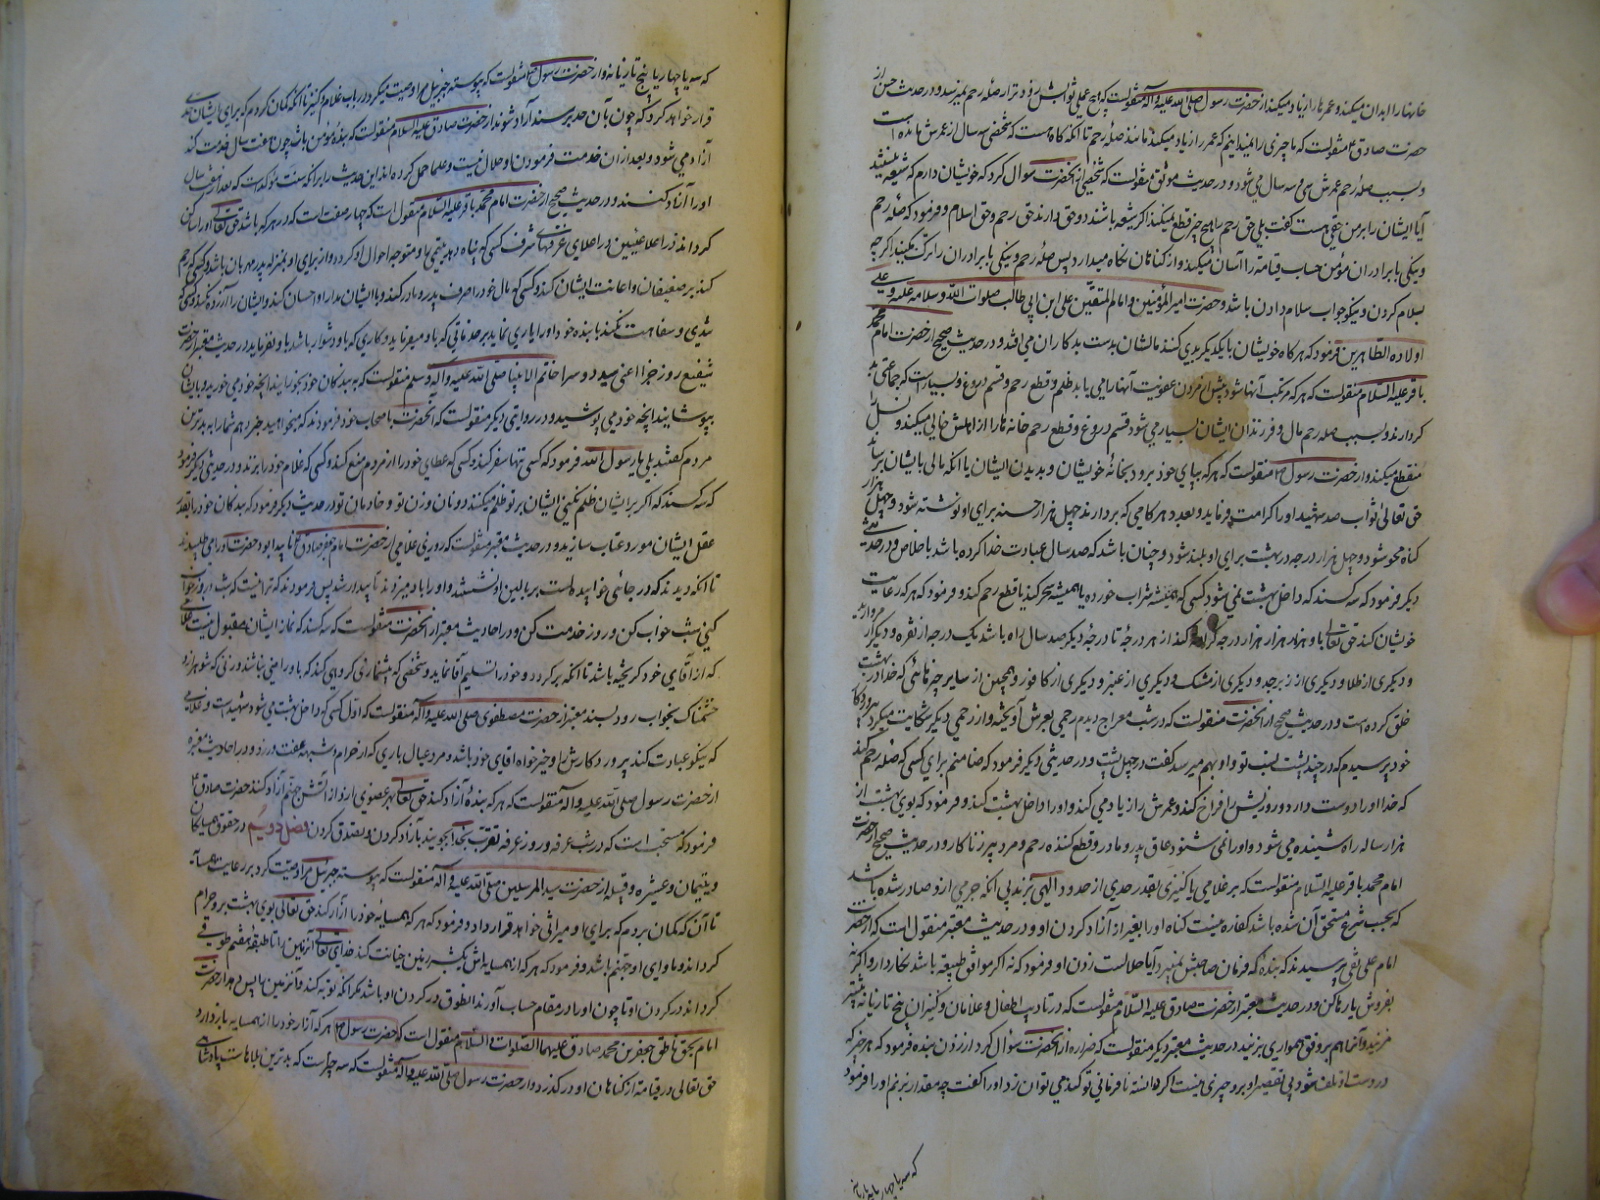 خانهارا ابدان میکند و عمرها را زیاد میکند از حضرت رسول صلی الله علیه و آله منقولست که هیچ عملی ثوابش زودتر از صله رحم نمیرسد و در حدیث حسن از
حضرت صادق ع منقولست که ما چیزی را نمیدانیم که عمر را زیاد میکند مانند صله رحم تا آنکه گاه هست که شخصی سه سال از عمرش مانده است
و بسبب صله رحم عمرش سی و سه سال می شود و در حدیث موثق منقولست که شخصی از آنحضرت سوال کرد که خویشان دارم که شیعه نیستند
آیا ایشان را بر من حقی هست گفت بلی حق رحم را هیچ چیز قطع نمیکند اگر شیعه باشند دو حق دارند حق رحم و حق اسلام و فرمود که صله رحم
و نیکی با برادران مؤمن حساب قیامة را آسان میکند و از گناهان نگاه میدارد پس صله رحم و نیکی با برادران را ترک مکنید اگرچه
بسلام کردن و نیکو جواب سلام دادن باشد و حضرت امیر المؤمنین و امام المتقین علی ابن ابی طالب صلوات الله و سلامه علیه و علی
اولاده الطاهرین فرمود که هرگاه خویشان با یکدیگر بدی کنند مالشان بدست بدکاران می افتد و در حدیث صحیح از حضرت امام محمد
باقر علیه السلام منقولست که هر که مرتکب آنها شود پیش از مردن عقوبت آنها را می یابد ظلم و قطع رحم و قسم دروغ و بسیار است که جماعتی بد
کردارند و بسبب صله رحم مال و فرزندان ایشان بسیار می شود قسم دروغ و قطع رحم خانه ها را از اهلش خالی میکند و نسل را
منقطع میکند و از حضرت رسول ص منقولست که هر که بپای خود برود بخانه خویشان و بدیدن ایشان یا آنکه مالی بایشان برساند
حق تعالی ثواب صد شهید او را کرامت فرماید و بعدد هر گامی که بردارند چهل هزار حسنه برای او نوشته شود و چهل هزار
گناه محو شود و چهل هزار درجه در بهشت برای او بلند شود و چنان باشد که صد سال عبادت خدا کرده باشد با خلاص و در حدیثی
دیگر فرمود که سه کسند که داخل بهشت نمی شود کسی که همیشه شراب خورد یا همیشه سحر کند یا قطع رحم کند و فرمود که هر که رعایت
خویشان کند حق تعالی باو هزار هزار درجه کرامت کند از هر درجه تا درجه دیگر صد سال راه باشد یک درجه از نقره و دیگر از مروارید
و دیگری از طلا و دیگری از زبرجد و دیگری از مشک و دیگری از عنبر و دیگری از کافور و همچنین از سایر چیزهائی که خدا در بهشت
خلق کرده است و در حدیث صحیح از آنحضرت منقولست که در شب معراج دیدم رحمی بعرش آویخته و از رحمی دیگر شکایت میکرد
خود پرسیدم که در چند پشت نسب تو و او بهم میرسد گفت در چهل پشت و در حدیثی دیگر فرمود که ضامنم برای کسی که صله رحم کند
که خدا او را دوست دارد و روزیش را فراخ کند و عمرش را زیاد می کند و او را داخل بهشت کند و فرمود که بوی بهشت از
هزار ساله راه شنیده می شود و او را نمی شنود عاق پدر و مادر و قطع کننده رحم و مرد پیر زناکار و در حدیث صحیح از حضرت
امام محمد باقر علیه السلام منقولست که هر غلامی یا کنیزی بقدر حدی از حدود الهی بزند بی آنکه جرمی از او صادر شده باشد
که بحسب شرع مستحق آن شده باشد کفاره نیست گناه او را بغیر از آزاد کردن او و در حدیث معتبر منقول است که از حضرت
امام علی نقی ع پرسیدند که بنده که فرمان صاحبش نمیبرد آیا حلالست زدن او فرمود که نه اگر موافق طبیعه باشد نگاه دار و اگر نه
بفروش یا رها کن و در حدیث معتبر از حضرت صادق علیه السلام منقولست که در تادیب اطفال و غلامان و کنیزان پنج تازیانه بیشتر
مزنید و آنها هم برفق و همواری بزنید در حدیث معتبر دیگر منقولست که زراره از آنحضرت سوال کرد از زدن بنده فرمود که هر چیز که
در دست او تلف شود بی تقصیر او بر او چیزی نیست اگر دانسته نافرمانی تو کند می توان زد او را گفت چه مقدار بزنم او را فرمود
که سه یا چهار یا پنج تازیانه
که سه یا چهار یا پنج تازیانه و از حضرت رسول ص منقولست که پیوسته جبرئیل مرا وصیت میکرد در باب غلام و کنیز تا آنکه گمان کردم که برای ایشان حدی
قرار خواهد کرد که چون بآن حد برسند آزاد شوند از حضرت صادق علیه السلام منقولست که بنده مؤمن باشد چون هفت سال خدمت کند
آزاد می شود و بعد از آن خدمت فرمودن او حلال نیست و علما حمل کرده اند این حدیث را بر آنکه سنت مؤکد است که بعد از هفت سال
او را آزاد کنند و در حدیث صحیح از حضرت امام محمد باقر علیه السلام منقول است که چهار صفت است که در هر که باشد حق تعالی او را ساکن
گرداند در اعلا علیین و در اعلای غرفهای شرف کسی که پناه دهد یتیمی را و متوجه احوال او گردد و از برای او بمنزله پدر مهربان باشد و کسی که رحم
کند بر ضعیفان و اعانت ایشان کند و کسی که مال خود را صرف پدر و مادر کند و با ایشان مدارا و احسان کند و ایشان را آزرده نکند و کسی که
تندی و سفاهت نکند با بنده خود و او را یاری نماید بر خدماتی که باو میفرماید و کاری که باو دشوار باشد باو نفرماید در حدیث معتبر از حضرت
شفیع روز جزا اعنی سید دوسرا خاتم الانبیا صلی الله علیه و آله و سلم منقولست که به بندگان خود بخورانید آنچه خود می خورید و بایشان
بپوشانید آنچه خود می پوشید و در روایتی دیگر منقولست که آنحضرت با صحاب خود فرمودند که میخواهید خبر دهم شما را به بدترین
مردم گفتند بلی یا رسول الله فرمود که کسی تنها سفر کند و کسی که عطای خود را از مردم منع کند و کسی که غلام خود را بزند و در حدیثی دیگر فرمود
که سه کسند که اگر بر ایشان ظلم نکنی ایشان بر تو ظلم میکنند دونان و زن تو و خادمان تو در حدیث دیگر فرمود که بندگان خود را بقدر
عقل ایشان مورد عتاب سازید و در حدیث معتبر منقولست که روزی غلامی از حضرت امام جعفر صادق ع ناپیدا بود حضرت او را می طلبیدند
تا آنکه دیدند که در جائی خوابیده است بر بالین او نشستند و او را باد میزدند تا بیدار شد پس فرمودند که ترا نیست که شب و روز خواب
کنی شب خواب کن و روز خدمت کن و در احادیث معتبر از آنحضرت منقولست که سه کسند که نماز ایشان مقبول نیست غلامی
که از آقای خود گریخته باشد تا آنکه برگردد و خود را تسلیم آقا نماید و شخصی که پیشنمازی گروهی کند که باو راضی نباشند و زنی که شوهر از او
خشمناک بخواب رود بسند معتبر از حضرت مصطفوی صلی الله علیه و آله منقولست که اول کسی که داخل بهشت می شود شهید است و غلامی
که نیکو عبادت کند پروردگارش را و خیر خواه آقای خود باشد و مرد عیال باری که از حرام و شبهه عفت ورزد و در احادیث معتبره
از حضرت رسول صلی الله علیه و آله منقولست که هر که بنده آزاد کند حق تعالی بهر عضوی از او از آتش جهنم آزاد کند حضرت صادق ع
فرمود که سنتحب است که در شب عرفه و روز عرفه تقرب بخدا بجویند بآزاد کردن و تصدق کردن فصل دویم در حقوق همسایگان
و یتیمان و عشیره و قبیله از حضرت سید المرسلین صلی الله علیه و آله منقولست که پیوسته جبرئیل مرا وصیت کرد بر رعایت همسایه
تا آن که گمان بردم که برای او میراثی خواهد قرار داد و فرمود که هر که همسایه خود را آزار کند حق تعالی بوی بهشت بر او حرام
گرداند و ماوای او جهنم باشد و فرمود که هر که از همسایه اش یکشبر زمین خیانت کند خدای تعالی آن زمین را تا طبقه هفتم طوقی
گرداند در گردن او تا چون او را در مقام حساب آورند آن طوق در گردن او باشد مگر آنکه توبه کند و آن زمین را پس دهد از حضرت
امام بحق ناطق جعفر بن محمد صادق علیهما الصلوات و السلام منقول است که حضرت رسول ص هر که آزار خود را از همسایه باز دارد
حق تعالی در قیامة از گناهان او در گذرد و از حضرت رسول صلی الله علیه و آله منقولست که سه چیز است که بدترین بلاهاست پادشاهی